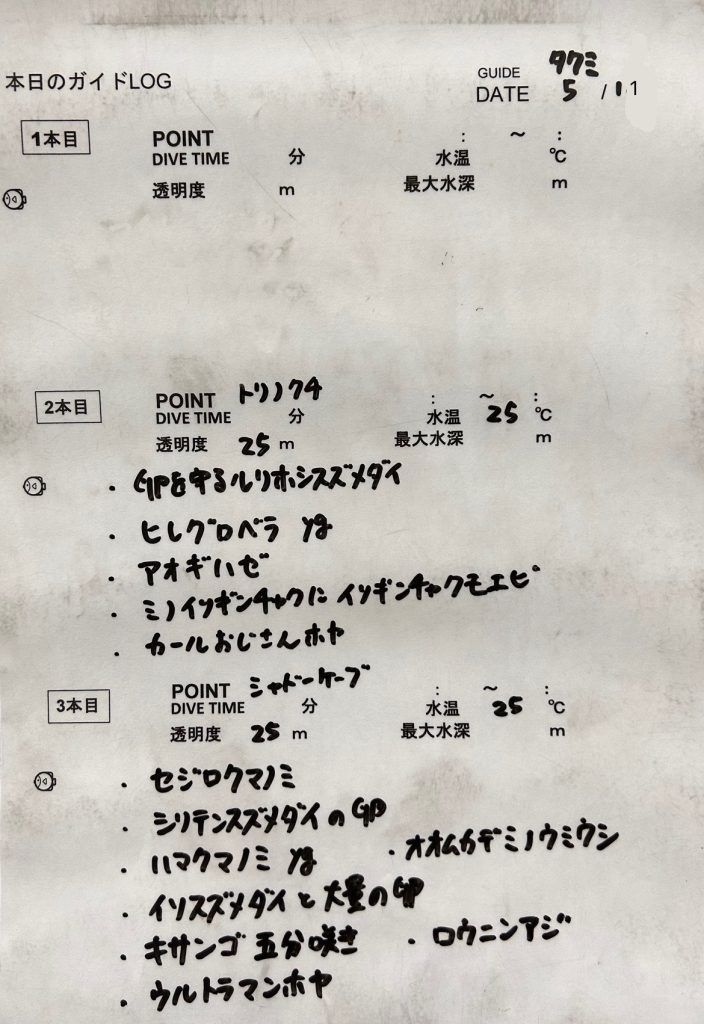 本日のガイドLOG
GUIDE タクミ
DATE 5 / 11
1本目
POINT : ～ :
DIVE TIME 分 水温 ℃
透明度 m 最大水深 m
2本目
POINT トリノクチ : ～ :
DIVE TIME 分 水温 25 ℃
透明度 25 m 最大水深 m
・GPを守るルリホシスズメダイ
・ヒレグロベラ yg
・アオギハゼ
・ミノイソギンチャクに イソギンチャクモエビ
・カールおじさんホヤ
3本目
POINT シャドーケーブ : ～ :
DIVE TIME 分 水温 25 ℃
透明度 25 m 最大水深 m
・セジロクマノミ
・シリテンスズメダイのGP
・ハマクマノミ yg ・オオムカデミノウミウシ
・イソスズメダイと大量のGP
・キサンゴ 五分咲き ・ロウニンアジ
・ウルトラマンホヤ